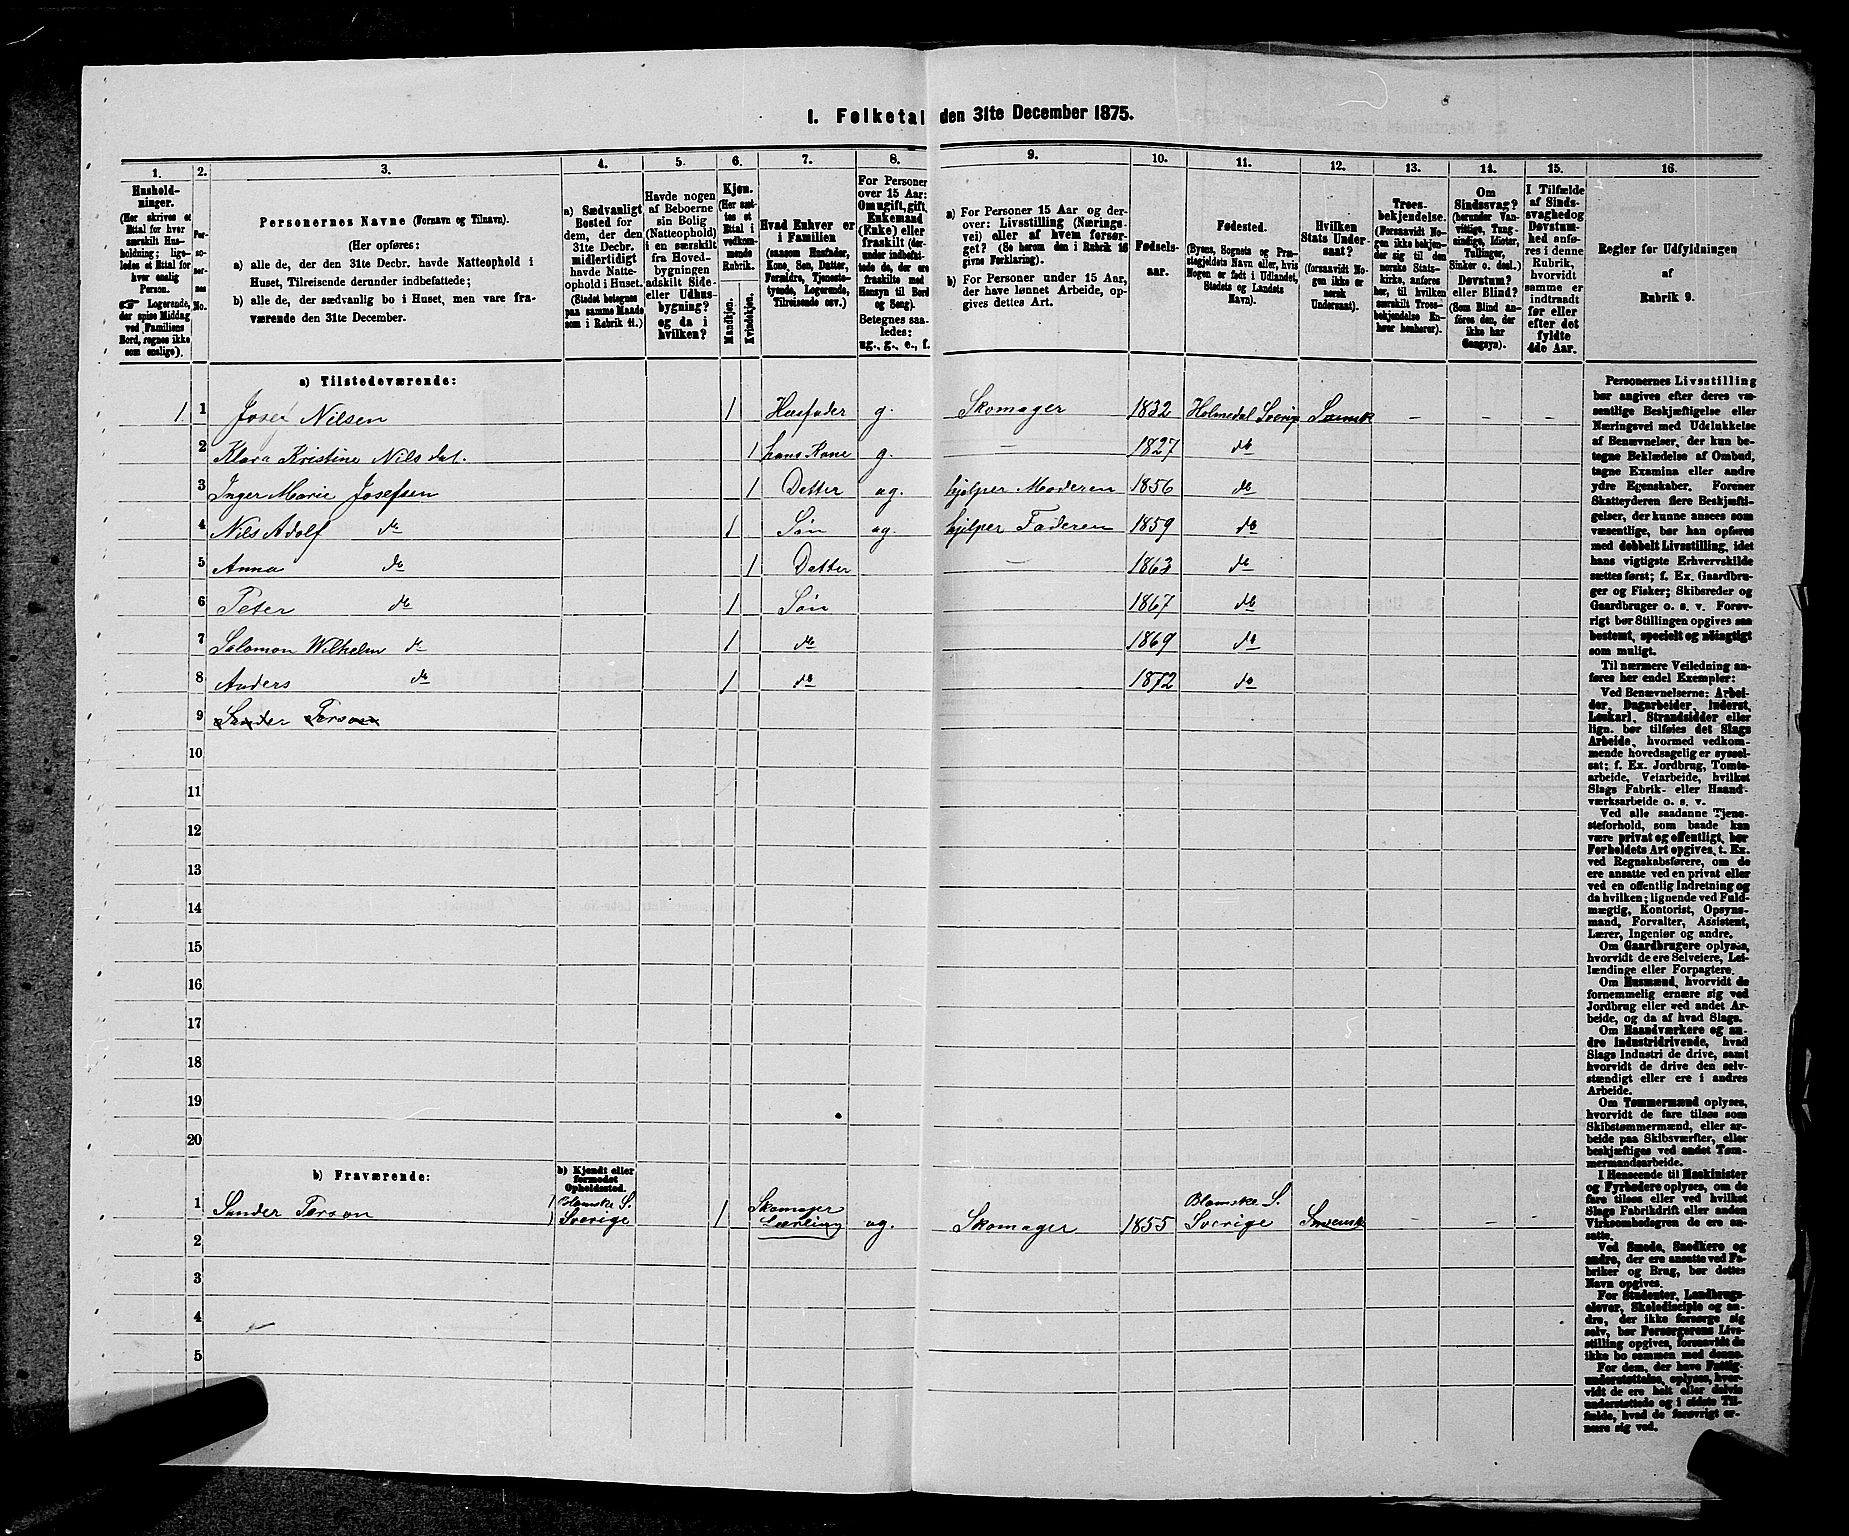 I. Folketal den 31te December 1875.
1. 2. 3. 4. 5. 6. 7. 8. 9. 10. 11. 12. 13. 14. 15. 16.
Hushold-
ninger.
(Her skrives et
Ettal for hver
særskilt Hus-
holdning; lige-
ledes et Ettal for
hver enslig
Person.
☞ Logerende,
der spise Middag
ved Familiens
Bord, regnes ikke
som enslige).
Per-
so-
ner-
nes
No.
Personernes Navne (Fornavn og Tilnavn).
(Her opføres:
a) alle de, der den 31te Decbr. havde Natteophold i
Huset, Tilreisende derunder indbefattede;
b) alle de, der sædvanlig bo i Huset, men vare fra-
værende den 31te December.
a) Sædvanligt
Bosted for
dem, der den
31te Decbr.
midlertidigt
havde Natte-
ophold i Huset.
(Stedet betegnes
paa samme Maade
som i Rubrik 11.)
Havde nogen
af Beboerne
sin Bolig
(Natteophold)
i en særskilt
fra Hoved-
bygningen
adskilt Side-
eller Udhus-
bygning?
og da i
hvilken?
Kjøn.
(Her sæt-
tes et
Ettal i
vedkom-
mende
Rubrik.
Mandkjøn.
Kvindekjøn.
Hvad Enhver er
i Familien
(saasom Husfader,
Kone, Søn, Datter,
Forældre, Tjeneste-
tyende, Logerende,
Tilreisende osv.)
For Personer
over 15 Aar:
Om ugift, gift,
Enkemand
(Enke) eller
fraskilt (der-
under indbefat-
tede de, der ere
fraskilte med
Hensyn til Bord
og Seng).
Betegnes saa-
ledes:
ug., g., e., f.
a) For Personer 15 Aar og der-
over: Livsstilling (Nærings-
vei) eller af hvem forsør-
get? (Se herom den i Rubrik 16
givne Forklaring).
b) For Personer under 15 Aar,
der have lønnet Arbeide, op-
gives dettes Art.
Fødsels-
aar.
Fødested.
(Byens, Sognets og Præ-
stegjeldets Navn eller, hvis
Nogen er født i Udlandet,
Stedets og Landets
Navn).
Hvilken
Stats Under-
saat?
(forsaavidt No-
gen ikke er
norsk
Undersaat).
Troes-
bekjendelse.
(Forsaavidt No-
gen ikke bekjen-
der sig til den
norske Stats-
kirke, anføres
her, til hvilken
særskilt Troes-
bekjendelse En-
hver henhører).
Om
Sindssvag?
(herunder Van-
vittige, Tung-
sindige, Idioter,
Tullinger,
Sinker o. desl.)
Døvstum?
eller Blind?
(Som Blind an-
føres den, der
ikke har
Gangsyn).
I Tilfælde
af Sinds-
svaghed og
Døvstum-
hed anfø-
res i denne
Rubrik,
hvorvidt
samme er
indtraadt
før eller
efter det
fyldte
4de Aar.
Regler for Udfyldningen
af
Rubrik 9.
a) Tilstedeværende:
1 1 Josef Nilsen 1 Husfader g. Skomager 1832 Holmedal Sverig Svensk – – –
2 Klara Kristine Nilsdat. 1 hans Kone g. – 1827 do
3 Inger Marie Josefsen 1 Datter ug. hjælper Moderen 1856 do
4 Nils Adolf do 1 Søn ug. hjelper Faderen 1859 do
5 Anna do 1 Datter – 1863 do
6 Peter do 1 Søn 1867 do
7 Salomon Wilhelm do 1 do 1869 do
8 Anders do 1 do 1872 do
9 Sander Terson
10
11
12
13
14
15
16
17
18
19
20
b) Fraværende:
b) Kjendt eller
formodet
Opholdssted.
1 Sander Terson Blomske S. Sverige 1 Skomager Lærling ug. Skomager 1855 Blomske S. Sverige Svensk – –
2
3
4
5
Personernes Livsstilling
bør angives efter deres væ-
sentlige Beskjæftigelse eller
Næringsvei med Udelukkelse
af Benævnelser, der kun be-
tegne Beklædelse af Ombud,
tagne Examina eller andre
ydre Egenskaber. Forener
Skatteyderen flere Beskjæfti-
gelser, der kunne ansees som
væsentlige, bør han opføres
med dobbelt Livsstilling, idet
hans vigtigste Erhvervskilde
sættes først; f. Ex. Gaardbru-
ger og Fisker; Skibsreder og
Gaardbruger o. s. v. Forøv-
rigt bør Stillingen opgives saa
bestemt, specielt og nøiagtigt
som muligt.
Til nærmere Veiledning an-
føres her endel Exempler:
Ved Benævnelserne: Arbei-
der, Dagarbeider, Inderst,
Løskarl, Strandsidder eller
lign. bør tilføies det Slags
Arbeide, hvormed vedkom-
mende hovedsagelig er syssel-
sat; f. Ex. Jordbrug, Tomte-
arbeide, Veiarbeide, hvilket
Slags Fabrik- eller Haand-
værksarbeide o. s. v.
Ved alle saadanne Tjene-
steforhold, som baade kan
være privat og offentligt, bør
Forholdets Art opgives, t. Ex.
ved Regnskabsførere, om de
ere ansatte ved en privat eller
ved en offentlig Indretning og
da hvilken; lignende ved Fuld-
mægtig, Kontorist, Opsyns-
mand, Forvalter, Assistent,
Lærer, Ingeniør og andre.
Om Gaardbrugere oplyses,
hvorvidt de ere Selveiere, Lei-
lændinge eller Forpagtere.
Om Husmænd, hvorvidt de
fornemmelig ernære sig ved
Jordbrug eller ved andet Ar-
beide, og da af hvad Slags.
Om Haandværkere og an-
dre industridrivende, hvad
Slags Industri de drive, samt
hvorvidt de drive den selv-
stændigt eller ere i andres
Arbeide.
Om Tømmermænd oplyses,
hvorvidt de fare tilsøs som
Skibstømmermænd, eller ar-
beide paa Skibsværfter, eller
beskjæftiges ved andet Tøm-
mermandsarbeide.
I Henseende til Maskinister
og Fyrbødere oplyses, om de
fare tilsøs eller ved hvilket
Slags Fabrikdrift eller anden
Virksomhedsgren de ere an-
satte.
Ved Smede, Snedkere og
andre, der ere ansatte ved Fa-
briker og Brug, bør dettes
Navn opgives.
For Studenter, Landbrugs-
elever, Skoledisciple og an-
dre, der ikke forsørge sig
selv, bør Forsørgerens Livs-
stilling opgives, forsaavidt de
ikke bo sammen med denne.
For dem, der have Fattig-
understøttelse, oplyses, hvor-
vidt de ere helt eller delvis
understøttede og i sidste Til-
fælde, hvad de forøvrigt er-
nære sig ved.